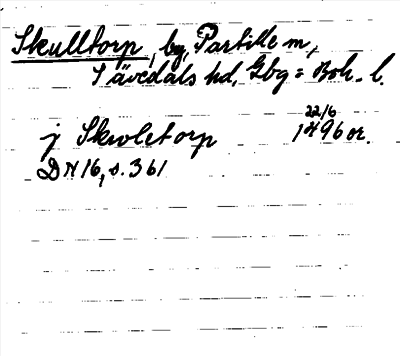 Skulltorp, by, Partille m,
Sävedals hd, Gbg = Boh. l.
j Skwletorp 1496 or. 22/6
DN 16, s. 361